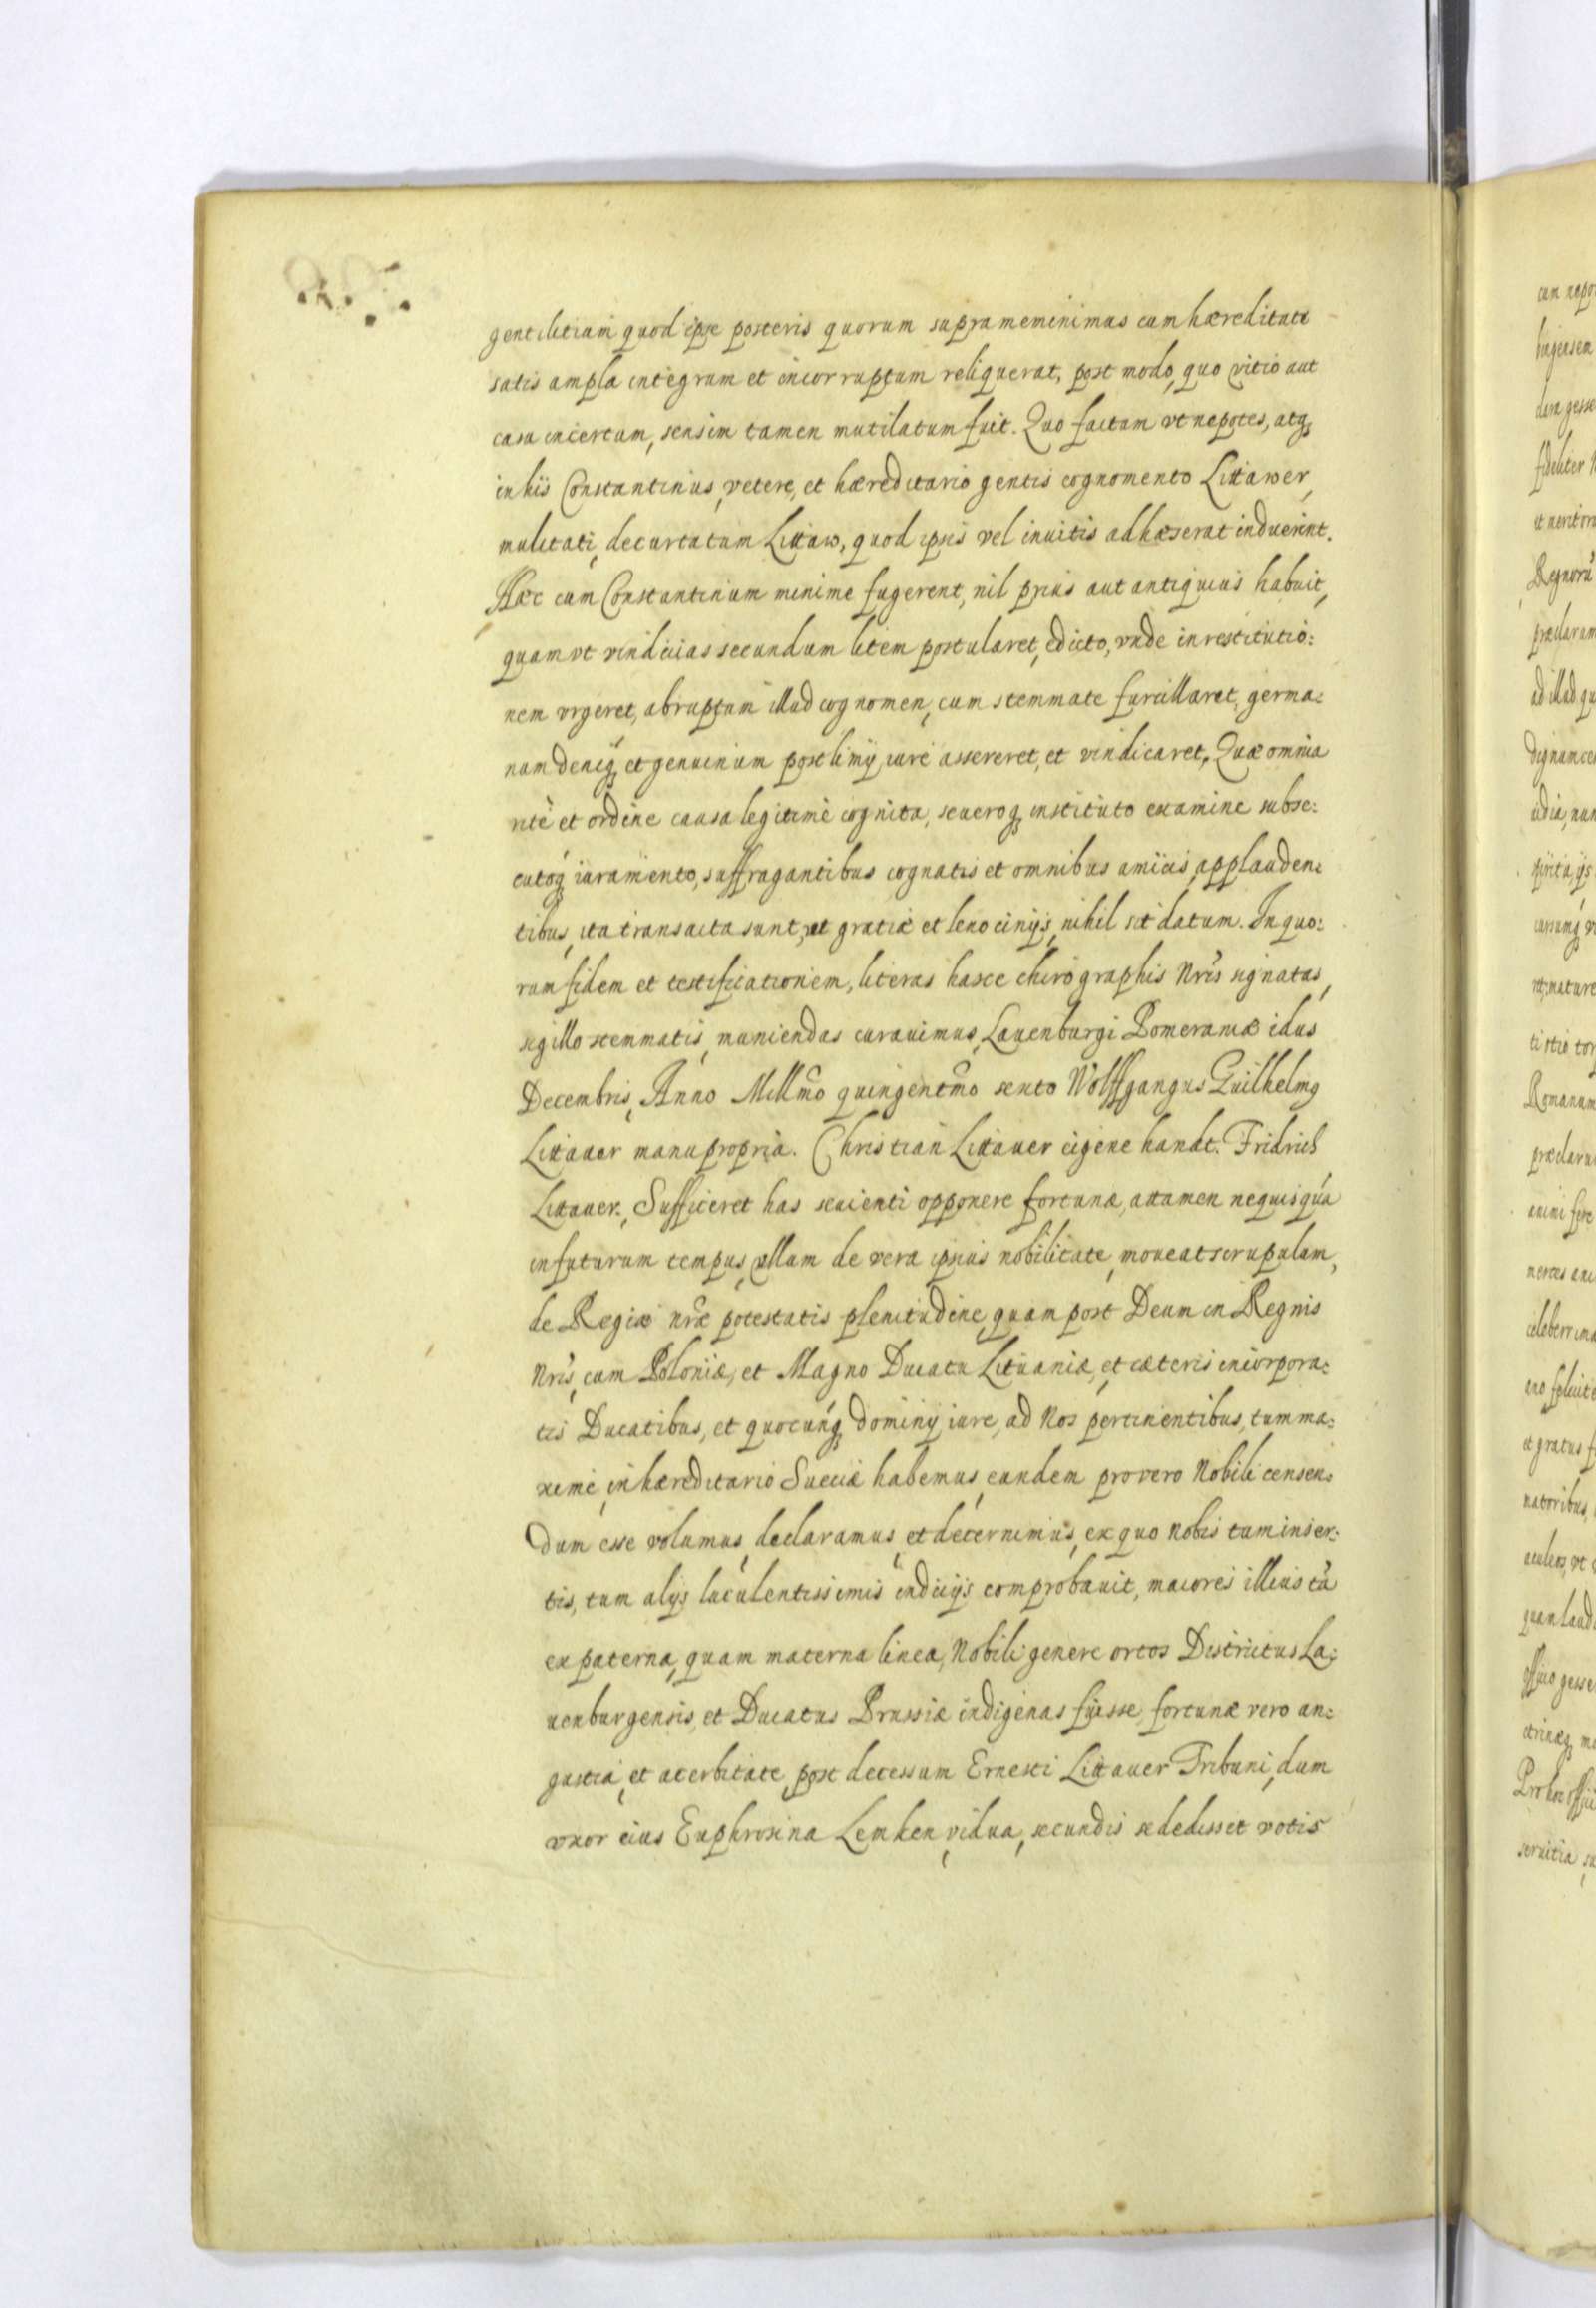 gentilitiam quod ipse posteris quorum supra meminimus cum hæreditate
satis ampla integrum et incorruptum reliquerat, post modo, quo vitio aut
casu incertum, sensim tamen mutilatum fuit. Quo factum vt nepotes, atq
in hiis Constantinus, vetere, et hæreditario gentis cognomento Littawer,
mulctati, decurtatum Littaw, quod ipsis vel inuitis adhæserat induerint.
Hæc cum Constantinum minime fugerent, nil prius aut antiquius habuit,
quam vt vindicias secundum litem postularet, edicto, vnde in restitutio:
nem vrgeret, abruptum illud cognomen, cum stemmate furcillaret, germa:
num deniq et genuinum postliminij iure assereret, et vindicaret, Quæ omnia
ritè et ordine causa legitimè cognita, seueroq instituto examine subse:
cutoq iuramento, suffragantibus cognatis et omnibus amicis, applauden:
tibus, ita transacta sunt, ut gratiæ et lenocinijs, nihil sit datum. In quo:
rum fidem et testificationem, literas hasce chirographis Nris signatas,
sigillo stemmatis, muniendas curauimus, Lauenburgi Pomeraniæ idus
Decembris, Anno Millmo quingentmo sexto Wolffgangus Guilhelmg
Littauer manu propria. Christian Littauer eigene handt. Fridrich
Littauer. Sufficeret has seuienti opponere fortunæ, attamen nequisquã
in futurum tempus, ullum de vera ipsius nobilitate, moueat scrupulum,
de Regiæ nræ potestatis plenitudine, quam post Deum in Regnis
Nris, cum Poloniæ, et Magno Ducatu Lituaniæ, et cæteris incorpora:
tis Ducatibus, et quocunq dominij iure, ad Nos pertinentibus, tum ma:
ximè, in hæreditario Sueciæ habemus, eundem pro vero Nobili censen:
dum esse volumus, declaramus, et decernimus, ex quo nobis tum inser:
tis, tum alijs luculentissimis indicijs comprobauit, maiores illius tã
ex paterna, quam materna linea, Nobili genere ortos Districtus La:
uenburgensis, et Ducatus Prussiæ indigenas fuisse, fortunæ vero an:
gustia, et acerbitate, post decessum Ernesti Littauer Tribuni, dum
vxor eius Euphrosina Lemken, vidua, secundis se dedisset votis